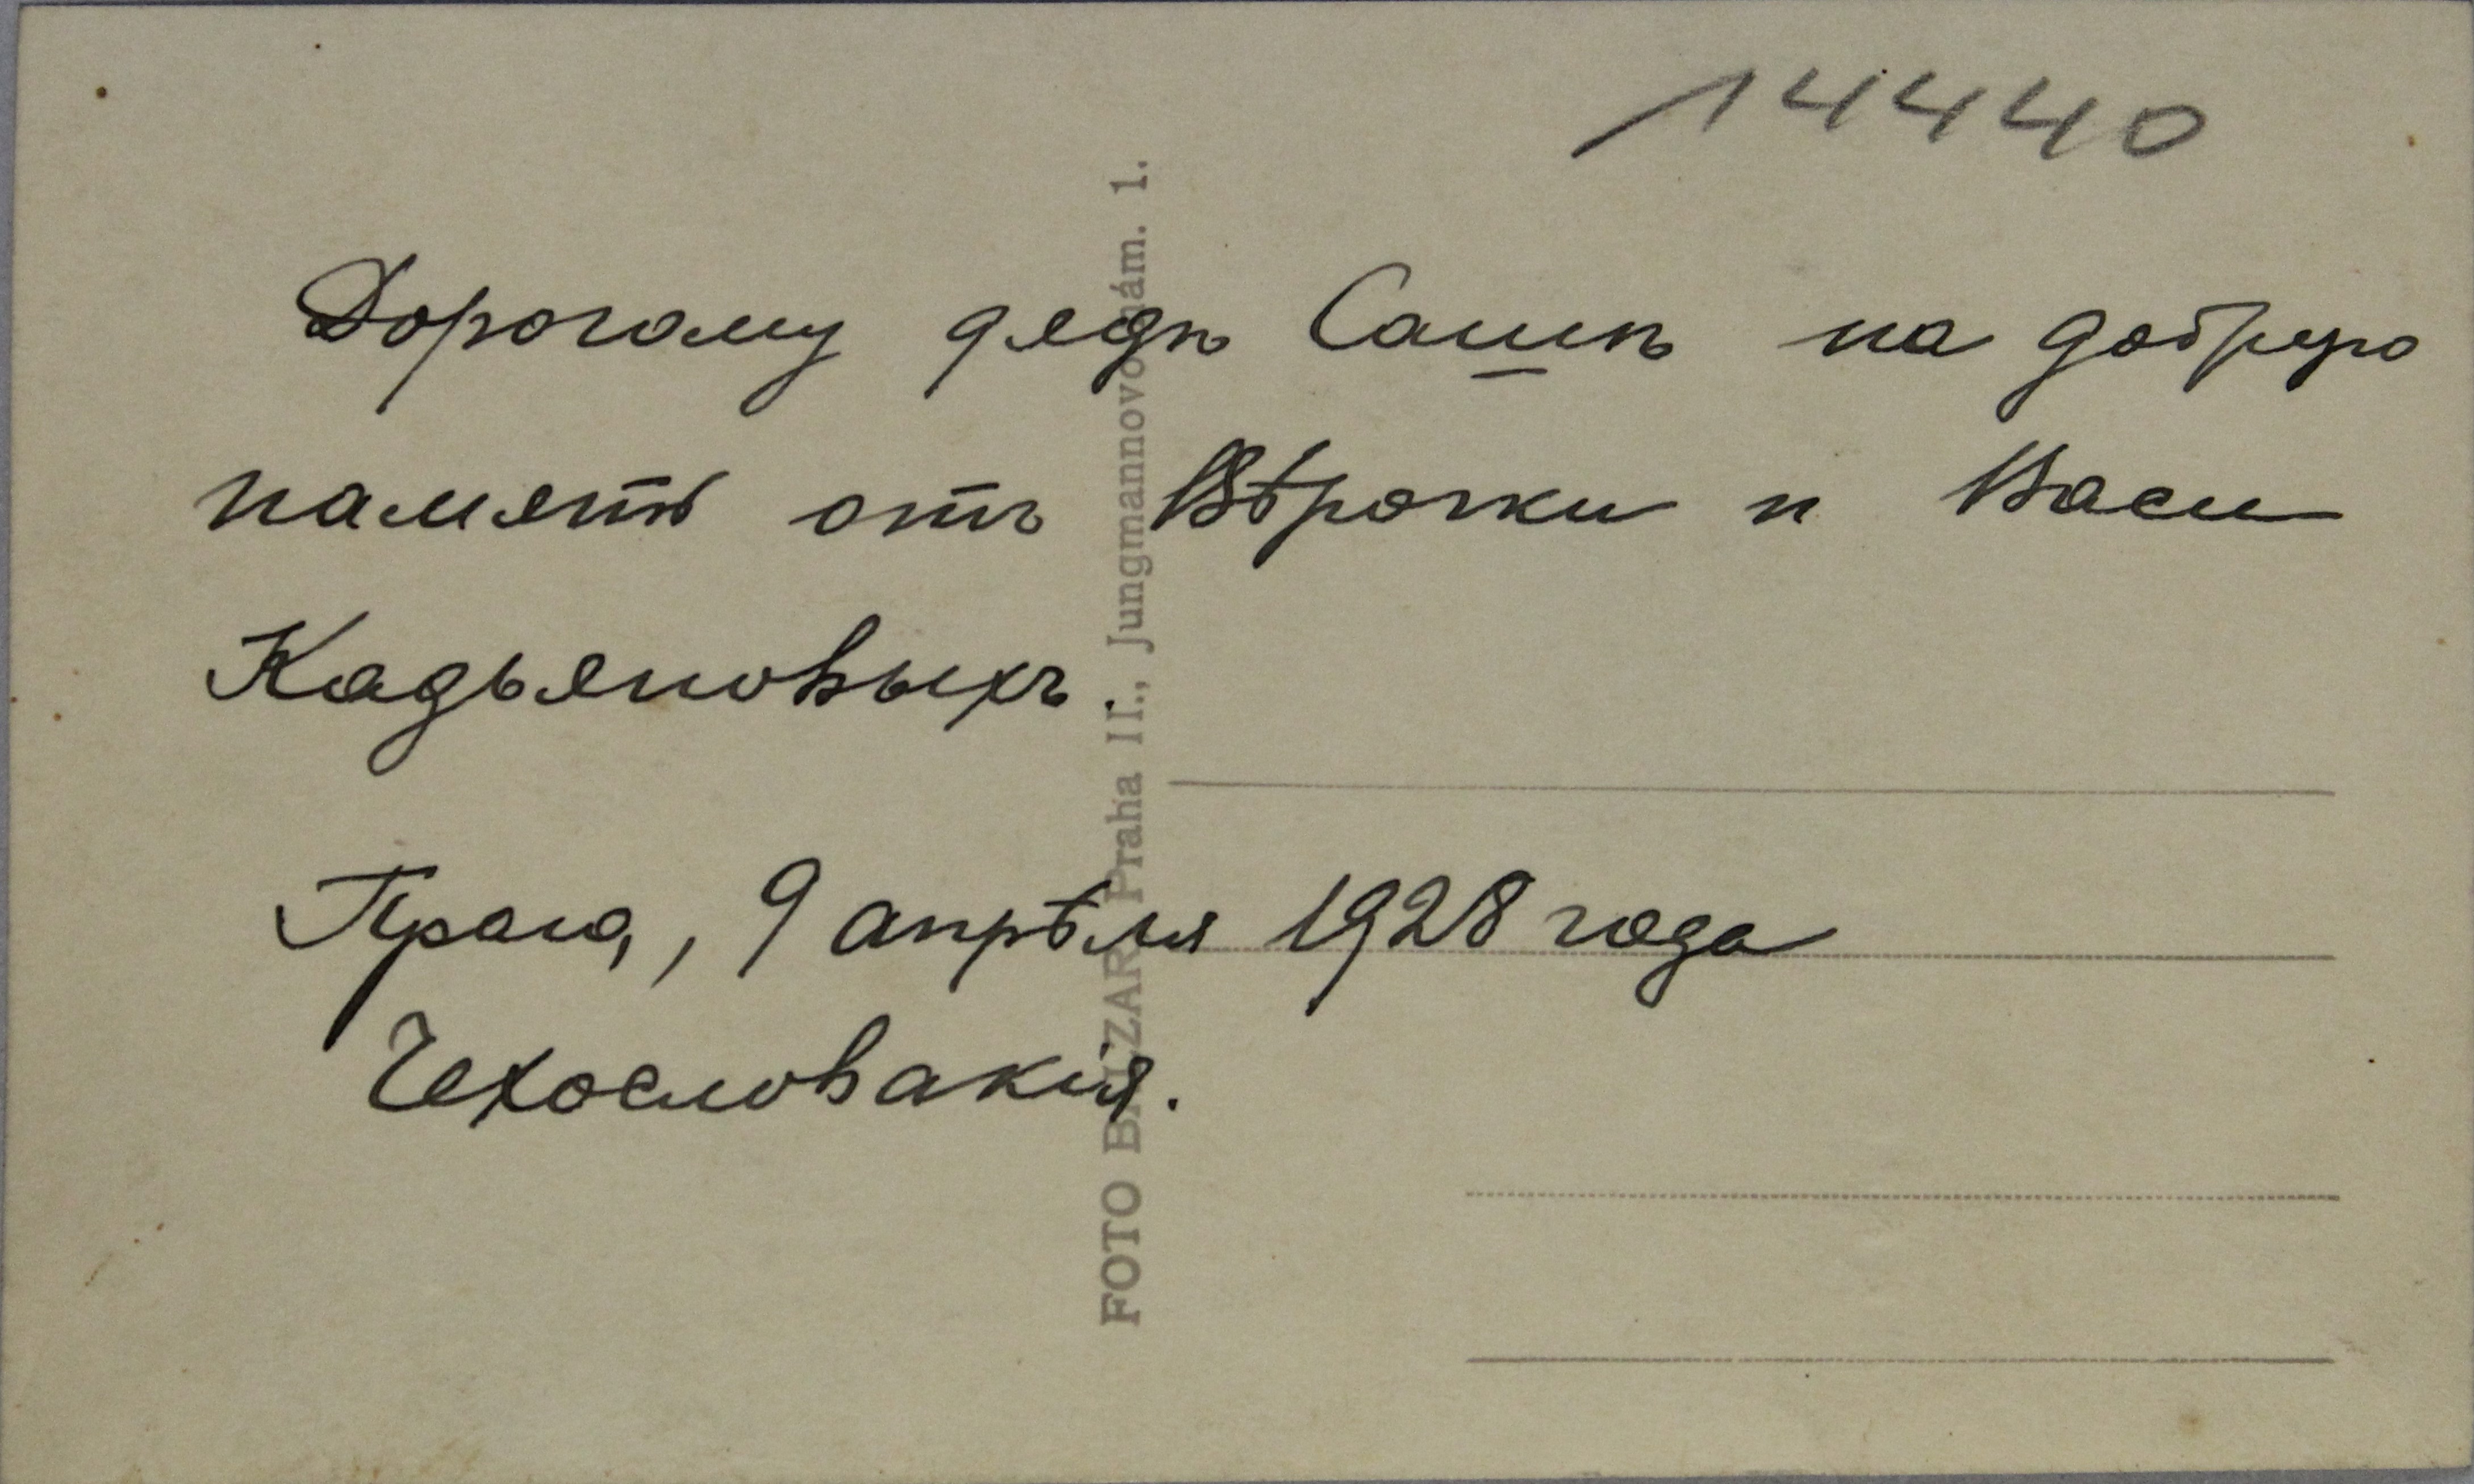 14440
Дорогому дядѣ Сашѣ на добрую
память отъ Вѣрочки и Васи
Кадьяновыхъ.
Прага, 9 апрѣля 1928 года
Чехословакія.
FOTO BALZAR, Praha II., Jungmannovo nám. 1.